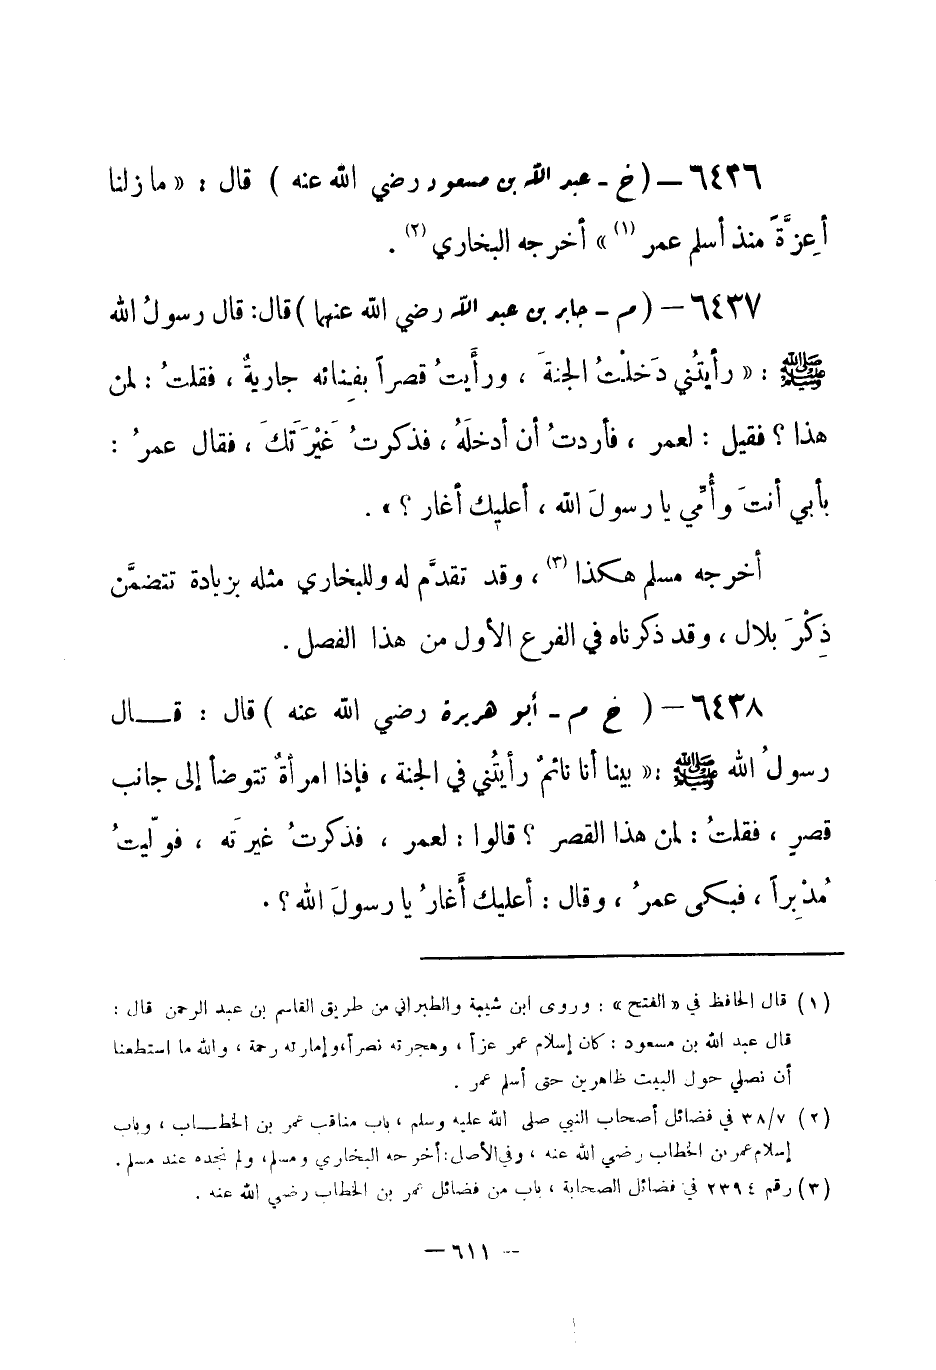 ٦٤٣٦ – ( خ - عبد الله بن مسعود رضي الله عنه ) قال : « ما زلنا
أعِزَّةً منذ أسلم عمر (١) » أخرجه البخاري (٢) .
٦٤٣٧ – ( م - جابر بن عبد الله رضي الله عنهما ) قال : قال رسولُ الله
ﷺ : « رأيتُني دَخلْتُ الجنةَ ، ورأَيتُ قصراً بفِنائه جاريةٌ ، فقلتُ : لمن
هذا ؟ فقيل : لعمر ، فأردتُ أن أدخلَهُ ، فذكرتُ غَيْرَتَكَ ، فقال عمرُ :
بأبي أنتَ وأُمِّي يا رسولَ الله ، أعليك أغار ؟ » .
أخرجه مسلم هكذا (٣) ، وقد تقدَّم له وللبخاري مثله بزيادة تتضمَّن
ذِكْرَ بلال ، وقد ذكرناه في الفرع الأول من هذا الفصل .
٦٤٣٨ – ( خ م - أبو هريرة رضي الله عنه ) قال : قـــال
رسولُ الله ﷺ : « بينا أنا نائمٌ رأيتُني في الجنة ، فإذا امرأةٌ تتوضأ إلى جانب
قصرٍ ، فقلتُ : لمن هذا القصر ؟ قالوا : لعمر ، فذكرتُ غيرَته ، فولّيتُ
مُدْبِراً ، فبكى عمرُ ، وقال : أعليك أَغارُ يا رسولَ الله ؟ .
(١) قال الحافظ في « الفتح » : وروى ابن شيبة والطبراني من طريق القاسم بن عبد الرحمن قال :
قال عبد الله بن مسعود : كان إسلام عمر عزاً ، وهجرته نصراً، وإمارته رحمة ، والله ما استطعنا
أن نصلي حول البيت ظاهرين حتى أسلم عمر .
(٢) ٣٨/٧ في فضائل أصحاب النبي صلى الله عليه وسلم ، باب مناقب عمر بن الخطـــاب ، وباب
إسلام عمر بن الخطاب رضي الله عنه ، وفي الأصل : أخرجه البخاري ومسلم، ولم نجده عند مسلم .
(٣) رقم ٢٣٩٤ في فضائل الصحابة ، باب من فضائل عمر بن الخطاب رضي الله عنه .
– ٦١١ –